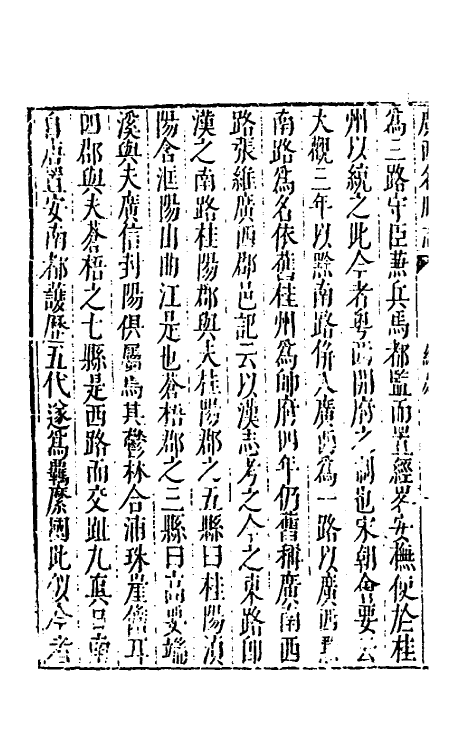 廣西名勝志
總卷
為二路守臣兼兵馬都監而置經畧安撫使於桂
州以統之此今者粤西開府之制也宋朝會要云
大觀三年以黔南路併入廣西為一路以廣西黔
南路為名依舊桂州為帥府四年仍舊稱廣南西
路張維廣西郡邑記云以漢志考之今之東路即
漢之南路桂陽郡與夫桂陽郡之五縣曰桂陽湞
陽含洭陽山曲江是也蒼梧郡之三縣曰高要端
溪與夫廣信封陽俱屬焉其鬱林合浦珠崖儋耳
四郡與夫蒼梧之七縣是西路而交趾九真日南
自唐置安南都護歷五代遂為羈縻國此似今者